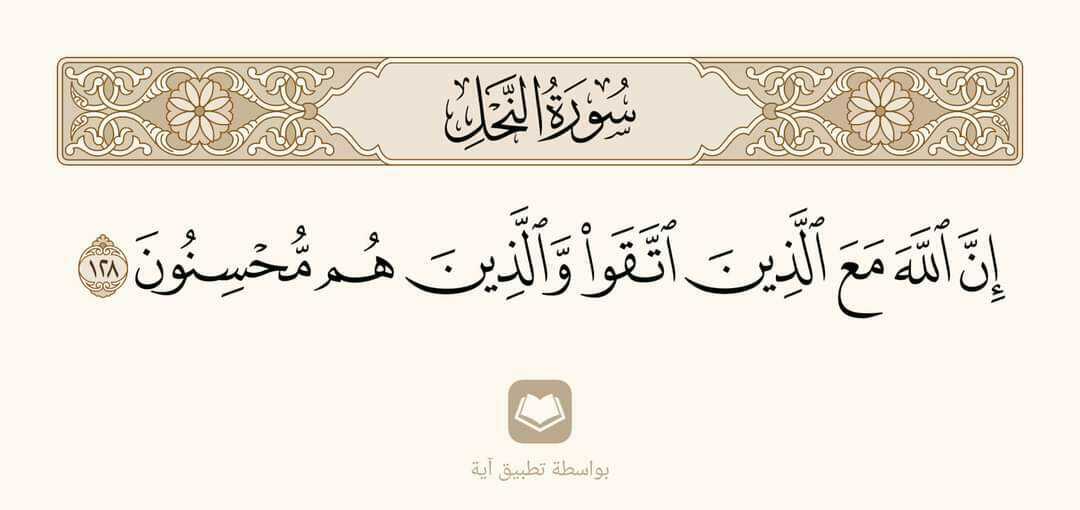 سُورَةُ النَّحْلِ
إِنَّ ٱللَّهَ مَعَ ٱلَّذِينَ ٱتَّقَوا۟ وَّٱلَّذِينَ هُم مُّحْسِنُونَ ١٢٨
بواسطة تطبيق آية